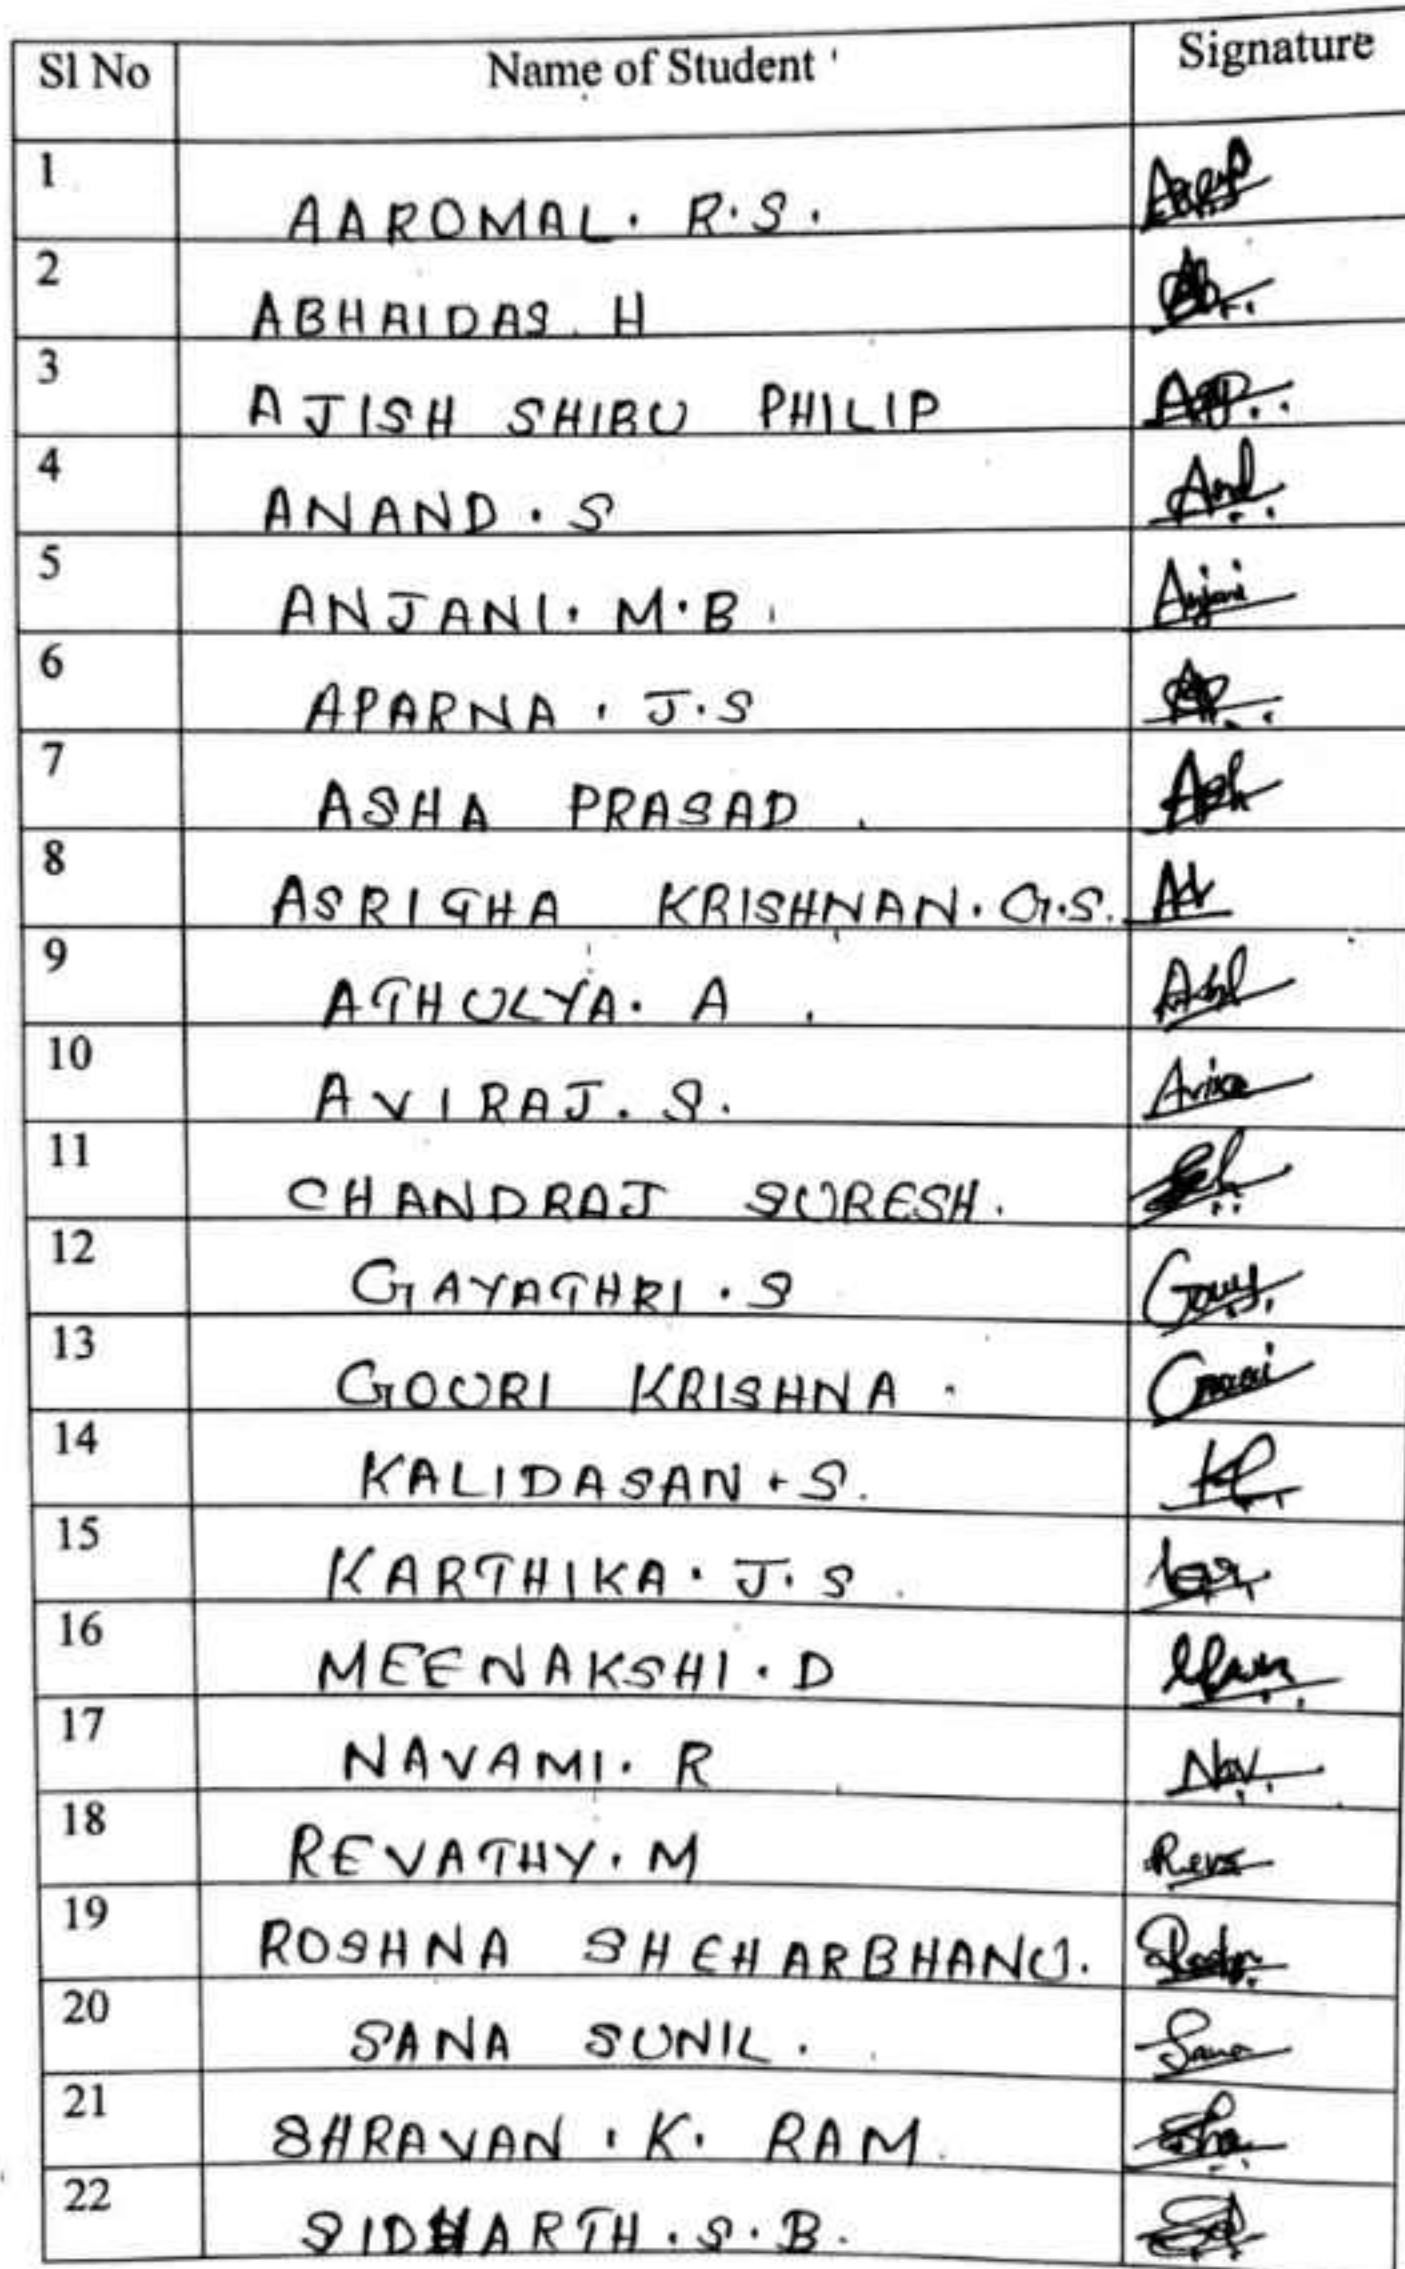 Sl No Name of Student Signature
1 AAROMAL. R.S.
2 ABHAIDAS. H
3 AJISH SHIBU PHILIP
4 ANAND. S And
5 ANJANI. M.B. Anjani
6 APARNA. J.S
7 ASHA PRASAD. Ash
8 ASRITHA KRISHNAN. G.S.
9 ATHULYA. A.
10 AVIRAJ. S.
11 CHANDRAJ SURESH.
12 GAYATHRI. S
13 GOURI KRISHNA.
14 KALIDASAN. S.
15 KARTHIKA. J.S
16 MEENAKSHI. D
17 NAVAMI. R Nav.
18 REVATHY. M
19 ROSHNA SHEHARBHANU.
20 SANA SUNIL. Sana
21 SHRAVAN. K. RAM
22 SIDHARTH. S.B.